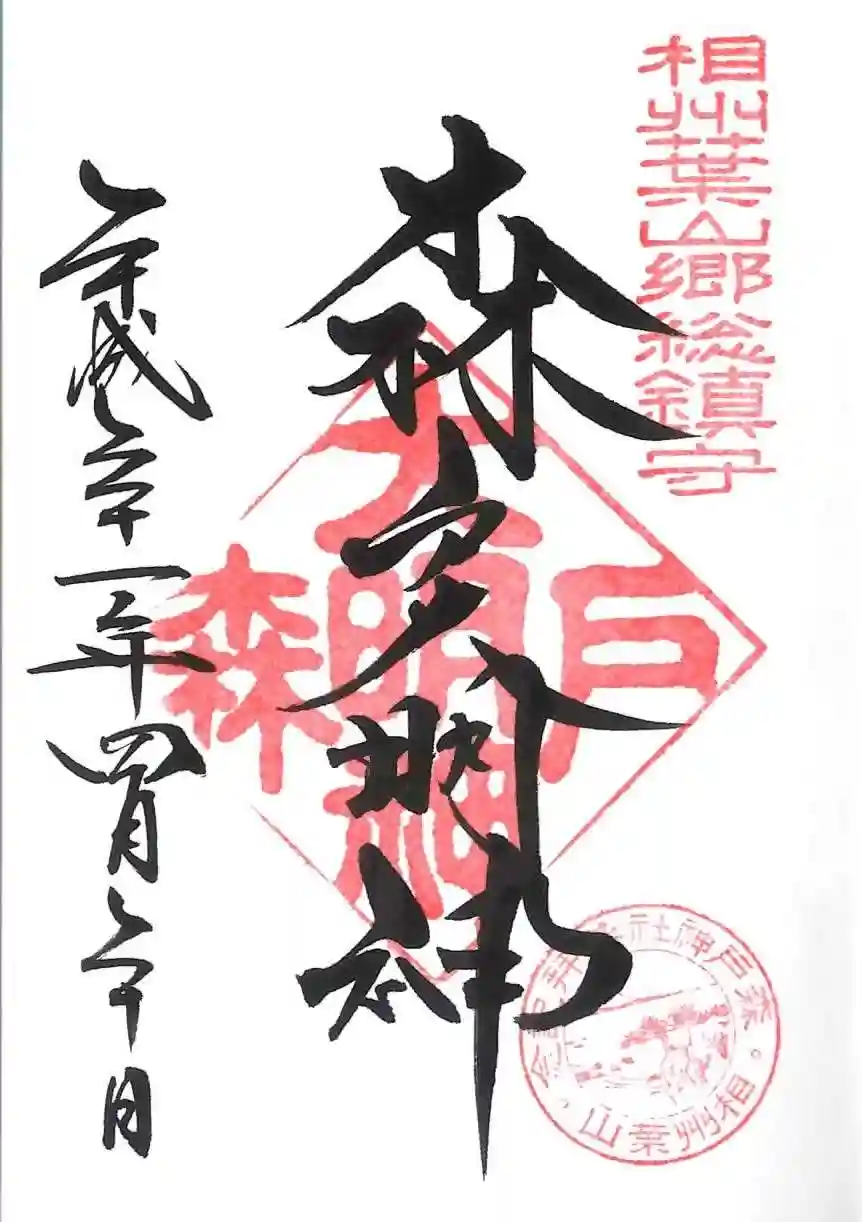 相州葉山郷総鎮守
森戸大明神
平成三十一年四月三十日
森戸大明神
森戸神社参拝記念
相州葉山